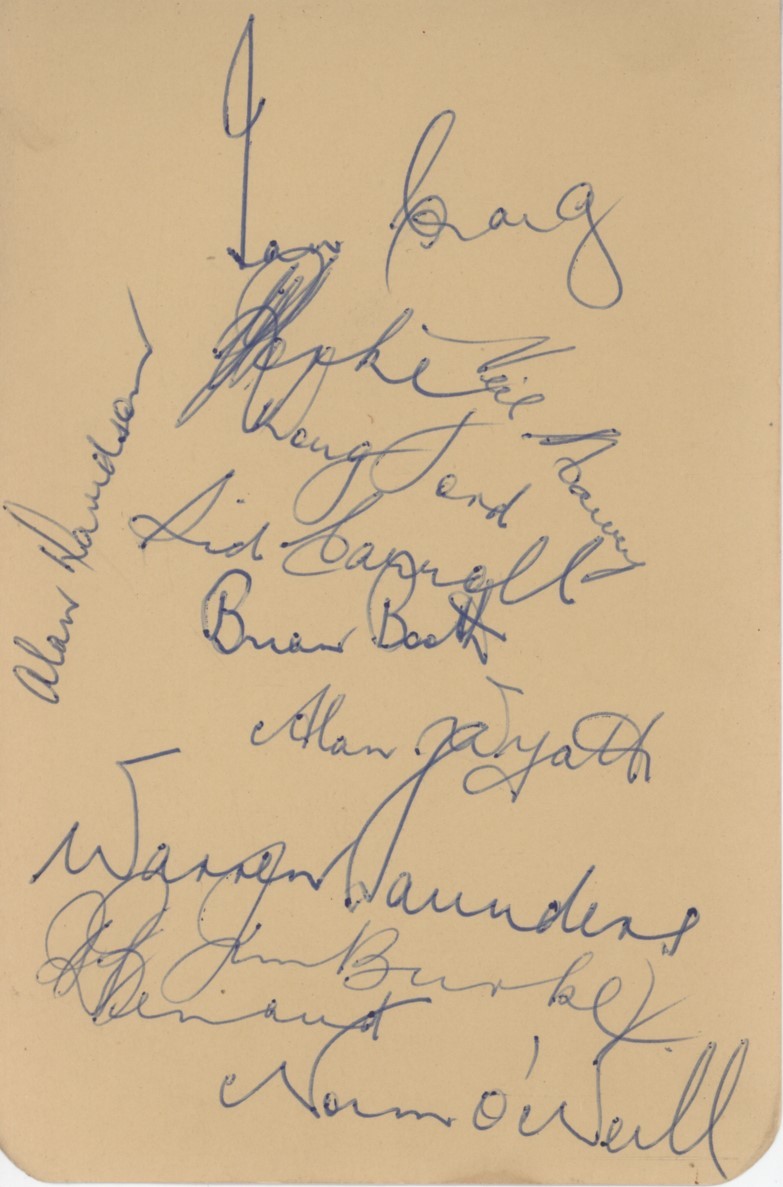 Ian Craig
Neil Harvey
Doug Ford
Sid Carroll
Alan Davidson
Brian Booth
Alan Wyatt
Warren Saunders
Jim Burke
Benaud
Norm O'Neill